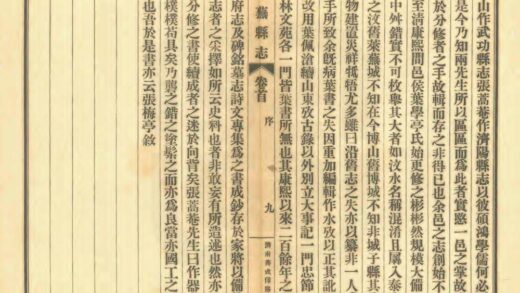 山作武功縣志張蒿菴作濟陽縣志以彼碩鴻學儒何必
是今乃知兩先生所以區區而爲此者實一邑之掌故
於分修者之手故輯而存之非得已也余邑之志創始不
至清康熙間邑侯葉學亭氏始更修之彬彬然規模大備
中舛錯實不可枚舉其大者如汶水名稱混淆且屬入泰
之汶舊萊蕪城不知在今博山舊博城不知非城子縣其
物建置災祥牴牾尤多雖曰沿舊志之失亦以纂非一人
手所致余既病葉書之失因重加編輯作水攷以正其訛
改用葉佩滄續山東攷古錄以外別立大事記一門忠節
林文苑各一門皆葉書所無也其康熙以來二百餘年之
蕪縣志 卷首 序 九 濟南善成印務
府志及碑銘墓志詩文專集爲之書成鈔存於家將以備
志者之采擇如所云史料也者非敢妄有所造述也然亦
分修之書使續成者之迷於向背矣張蒿菴先生曰作器
樸樸茍具矣乃之錯之塗髹之而亦爲良當亦國工之
也吾於是書亦云張梅亭敘